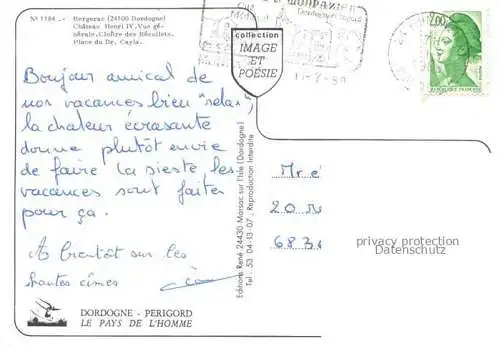 Nº 1184 .- Bergerac (24100 Dordogne)
Château Henri IV. Vue gé-
nérale. Cloître des Récollets.
Place du Dr. Cayla.
MONPAZIER
collection
IMAGE
ET
POÉSIE
2,00
RÉPUBLIQUE FRANÇAISE
Bonjour amical de
nos vacances bien "relax",
la chaleur écrasante
donne plutôt envie
de faire la sieste les
vacances sont faites
pour ça.
A bientôt sur les
hautes cîmes
Editions René 24430 Marsac sur l'Isle (Dordogne)
Tél. 53 04-13-07 . Reproduction Interdite
Mr é
20 R
687
privacy protection
Datenschutz
DORDOGNE - PERIGORD
LE PAYS DE L'HOMME